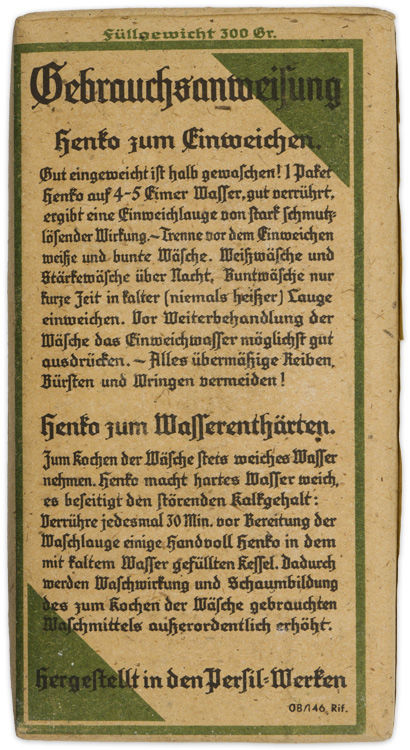 Füllgewicht 300 Gr.
Gebrauchsanweisung
Henko zum Einweichen.
Gut eingeweicht ist halb gewaschen! 1 Paket
Henko auf 4-5 Eimer Wasser, gut verrührt,
ergibt eine Einweichlauge von stark schmutz-
lösender Wirkung. – Trenne vor dem Einweichen
weiße und bunte Wäsche. Weißwäsche und
Stärkewäsche über Nacht, Buntwäsche nur
kurze Zeit in kalter (niemals heißer) Lauge
einweichen. Vor Weiterbehandlung der
Wäsche das Einweichwasser möglichst gut
ausdrücken. – Alles übermäßige Reiben,
Bürsten und Wringen vermeiden!
Henko zum Wasserenthärten.
Zum Kochen der Wäsche stets weiches Wasser
nehmen. Henko macht hartes Wasser weich,
es beseitigt den störenden Kalkgehalt:
Verrühre jedesmal 30 Min. vor Bereitung der
Waschlauge einige Handvoll Henko in dem
mit kaltem Wasser gefüllten Kessel. Dadurch
werden Waschwirkung und Schaumbildung
des zum Kochen der Wäsche gebrauchten
Waschmittels außerordentlich erhöht.
Hergestellt in den Persil-Werken
OB/146 Rif.